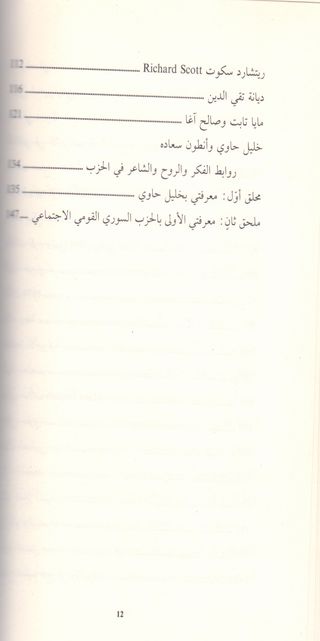 ريتشارد سكوت Richard Scott 112
ديانة تقي الدين 116
مايا ثابت وصالح آغا 121
خليل حاوي وأنطون سعاده
روابط الفكر والروح والشاعر في الحزب 134
محلق أوّل: معرفتي بخليل حاوي 135
ملحق ثانٍ: معرفتي الأولى بالحزب السوري القومي الاجتماعي 147
12